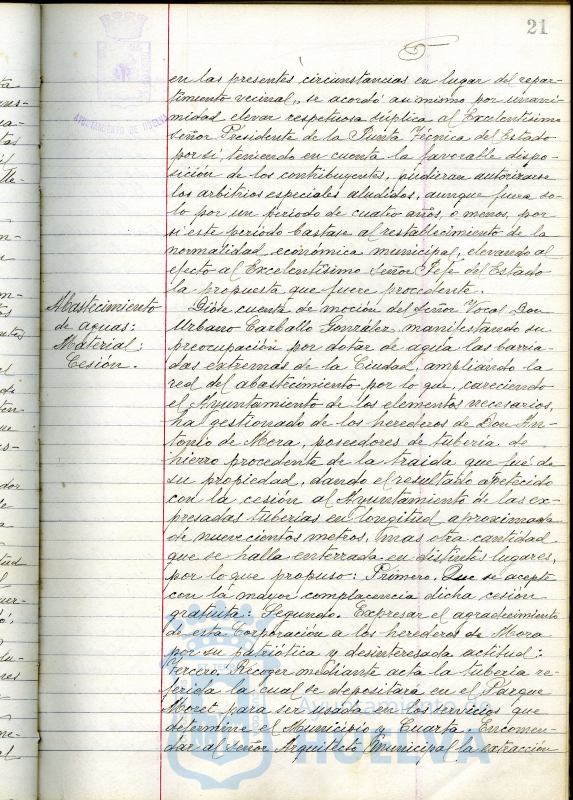 21
AYUNTAMIENTO DE HUELVA
en las presentes circunstancias en lugar del repar-
timiento vecinal, se acordó así mismo por unani-
midad elevar respetuosa súplica al Excelentísimo
Señor Presidente de la Junta Técnica del Estado
por si, teniendo en cuenta la favorable dispo-
sición de los contribuyentes, pudieran autorizarse
los arbitrios especiales aludidos, aunque fuera so-
lo por un periodo de cuatro años, o menos, por
si este periodo bastase al restablecimiento de la
normalidad económica municipal, elevando al
efecto al Excelentísimo Señor Jefe del Estado
la propuesta que fuere procedente.
Abastecimiento
de aguas:
Material:
Cesión.
Dióse cuenta de moción del Señor Vocal Don
Urbano Carballo González, manifestando su
preocupación por dotar de agua las barria-
das extremas de la Ciudad, ampliando la
red del abastecimiento, por lo que, careciendo
el Ayuntamiento de los elementos necesarios,
ha gestionado de los herederos de Don An-
tonio de Mora, poseedores de tubería de
hierro procedente de la traida que fué de
su propiedad, dando el resultado apetecido
con la cesión al Ayuntamiento de las ex-
presadas tuberías en longitud aproximada
de nuevecientos metros, mas otra cantidad
que se halla enterrada en distintos lugares,
por lo que propuso: Primero. Que se acepte
con la mayor complacencia dicha cesión
gratuita: Segundo. Expresar el agradecimiento
de esta Corporación a los herederos de Mora
por su patriótica y desinteresada actitud:
Tercero. Recoger mediante acta la tubería re-
ferida la cual se depositará en el Parque
Moret para ser usada en los servicios que
determine el Municipio y Cuarto. Encomen-
dar al Señor Arquitecto Municipal la extracción
Ayuntamiento de
HUELVA